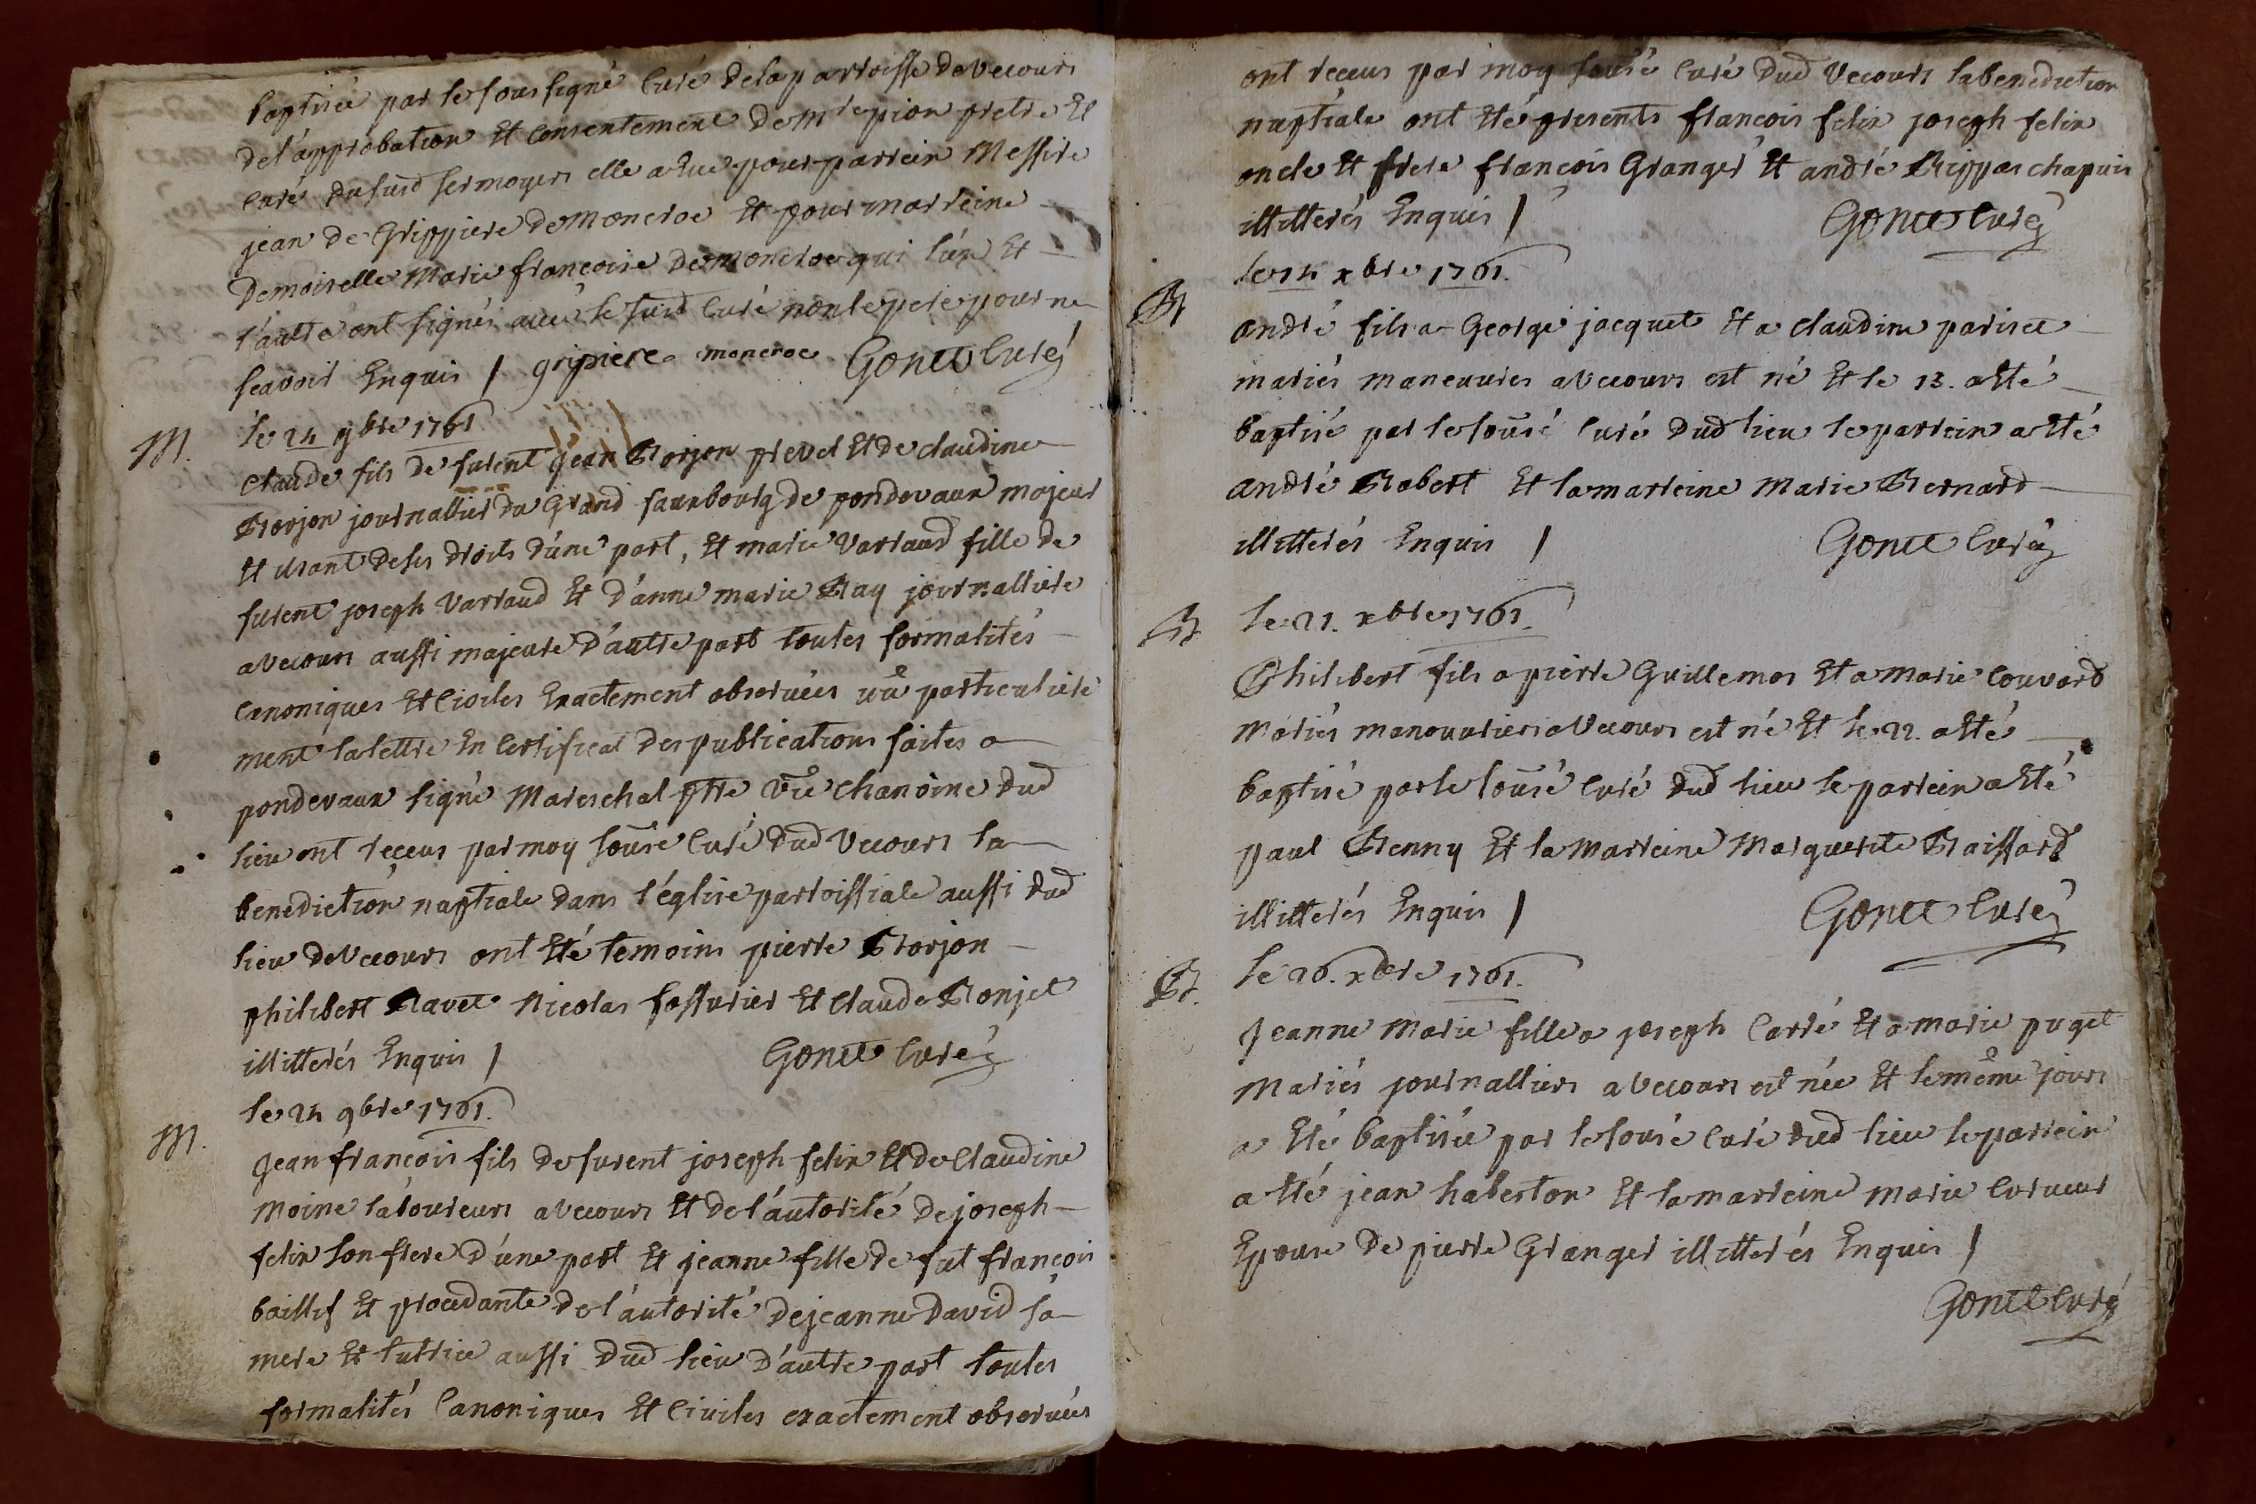 baptisée par le sous signé Curé de la parroisse de vecours
de l'approbation Et Consentement de Mre pion pretre Et
Curé du susd sermoyers elle a Eue pour parrein Messire
jean de Grippiere de Moncroc Et pour marreine
Demoiselle Marie françoise de moncroc qui l'un Et
l'autre ont signés avec le susd Curé non le pere pour ne
scavoir Enquis / gripiere moncroc Gonet Curé
M. le 24 9bre 1761
Claude fils de furent jean Borjon prevel Et de claudine
Borjon journallier du Grand fauxbourg de pondevaux majeur
Et usant de ses droits d'une part, Et marie Varraud fille de
furent joseph Varraud Et d'anne marie Ray journalliere
a vecours aussi majeure d'autre part toutes formalités
Canoniques Et Civiles Exactement observées vû particuliere
ment la lettre En Certificat des publications faites a
pondevaux signé Mareschal ptre vire chanoine dud
lieu ont reçeus par moy sousé Curé dud Vecours la
benediction nuptiale dans l'église parroissiale aussi dud
lieu de Vecours ont Eté temoins pierre Borjon
philibert Ravet Nicolas fossurier Et Claude Bonjet
illitterés Enquis / Gonet Curé
le 24 9bre 1761.
M. Jean françois fils de furent joseph felix Et de Claudine
Moine laboureurs a vecours Et de l'autorité de joseph
felix son frere d'une part Et jeanne fille de fut françois
baillif Et procedante de l'autorité de jeanne David sa
mere Et tutrice aussi dud lieu d'autre part toutes
formalités Canoniques Et Civiles exactement observées
ont receus par moy sousé Curé dud Vecours la benediction
nuptiale ont Eté presents françois felix joseph felix
oncle Et frere françois Granger Et andré Rippas chapuis
illitterés Enquis / Gonet Curé
le 14 xbre 1761.
B andré fils a George jacquet Et a claudine pariset
mariés maneuvres a Vecours est né Et le 13. a Eté
baptisé par le sousé Curé dud lieu le parrein a Eté
andré Robert Et la marreine Marie Bernard
illitterés Enquis / Gonet Curé
B. le 21. xbre 1761.
Philibert fils a pierre Guillemos Et a Marie Couvard
Mariés manouvriers a Vecours est né Et le 22. a Eté
baptisé par le sousé Curé dud lieu le parrein a Eté
paul Benny Et la Marreine Marguerite Baissard
illitterés Enquis / Gonet Curé
B. le 26. xbre 1761.
Jeanne Marie fille a joseph Carré Et a marie puget
Mariés journalliers a Vecours est née Et le même jours
a Eté baptisée par le sousé Curé dud lieu le parrein
a Eté jean haberton Et la marreine marie
Epouse de pierre Granger illitterés Enquis /
Gonet Curé